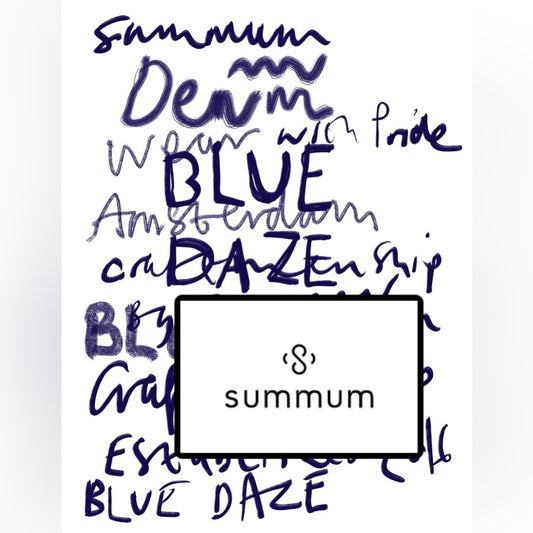 summum
Denim
Wear with Pride
BLUE
Amsterdam
DAZE
craftsmanship
By
BLU
Craf
S
summum
BLUE DAZE